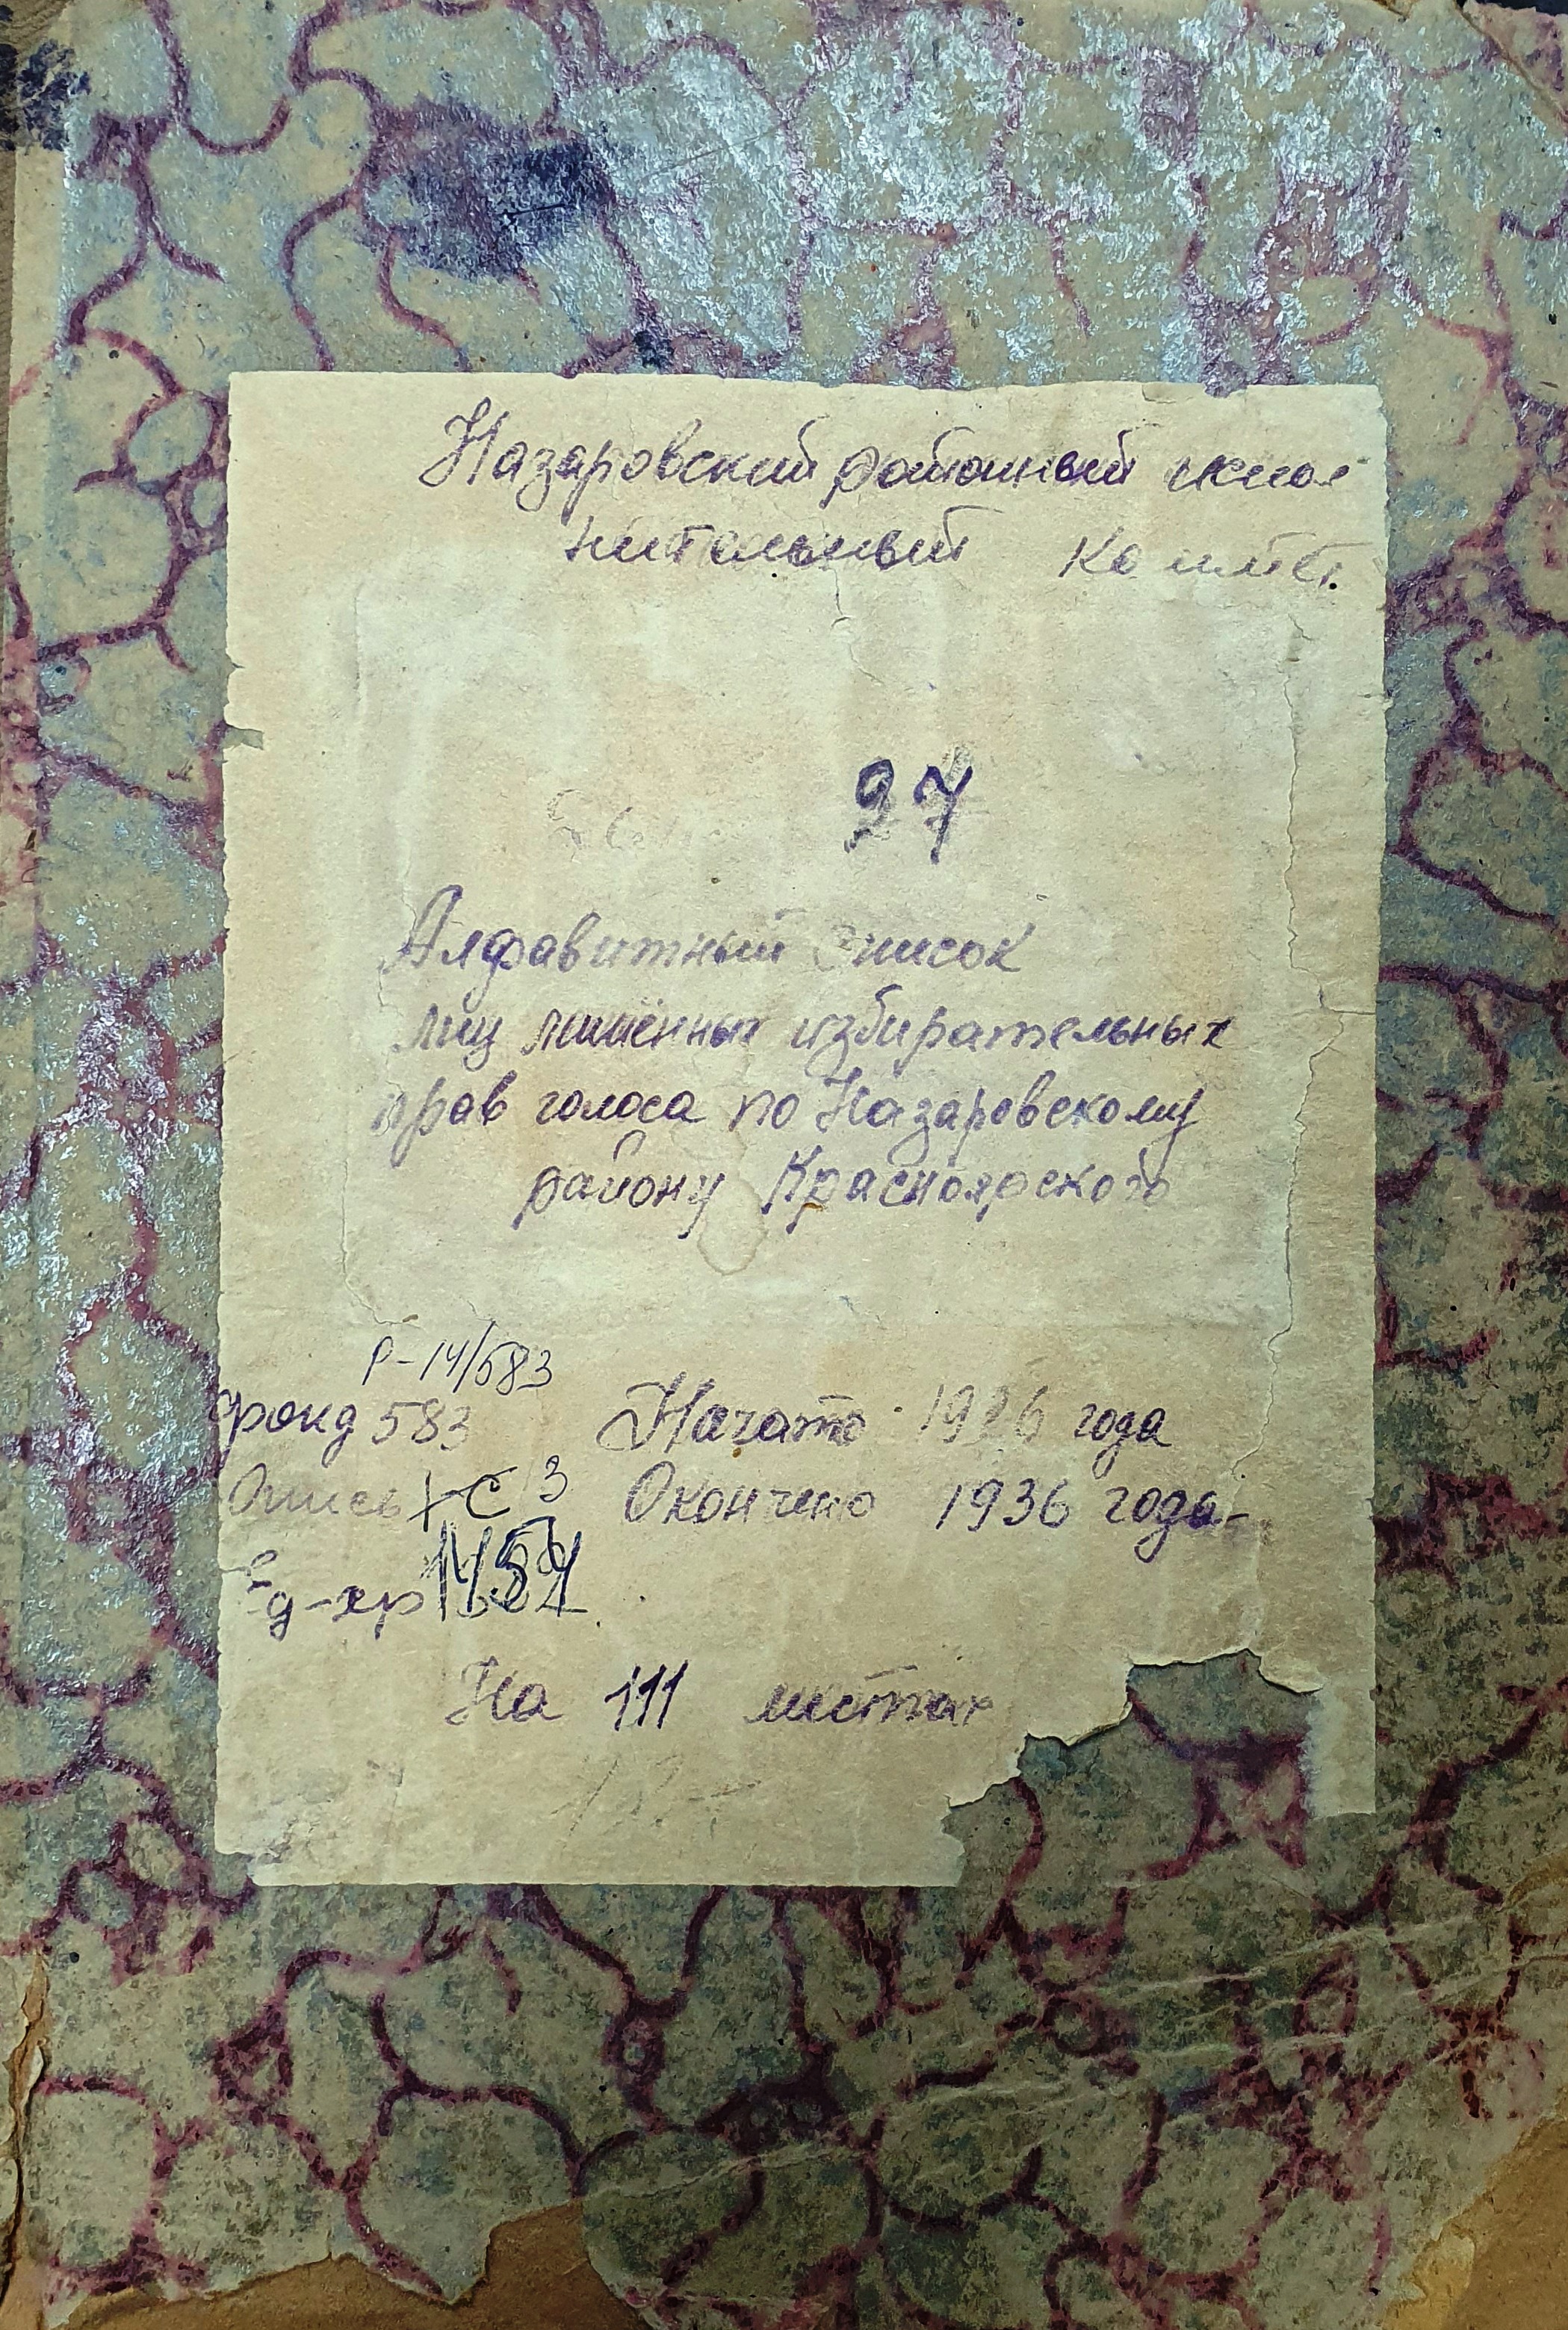 Назаровский районный испол
нительный комитет.
27
Алфавитный список
лиц лишённых избирательных
прав голоса по Назаровскому
району Красноярского
Р-14/583
Фонд 583 Начато 1926 года
Опись С 3 Окончено 1936 года
Ед-хр 1454
На 111 листах